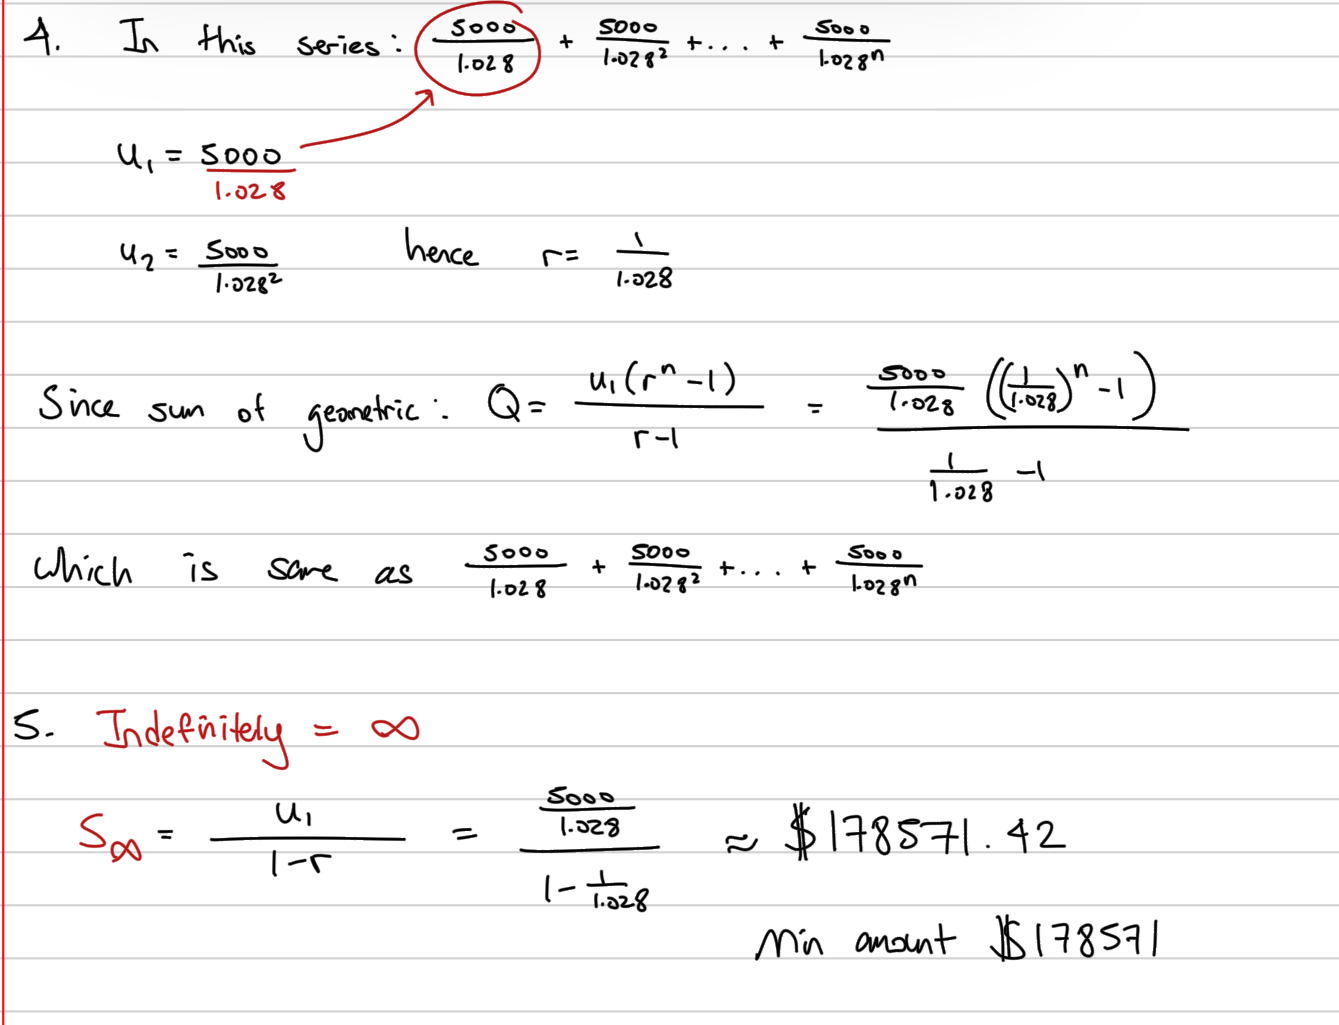 4. In this series: 5000/1.028 + 5000/1.028² + ... + 5000/1.028ⁿ
u₁ = 5000/1.028
u₂ = 5000/1.028² hence r = 1/1.028
Since sum of geometric: Q = u₁(rⁿ - 1)/(r - 1) = 5000/1.028 ((1/1.028)ⁿ - 1)/(1/1.028 - 1)
Which is same as 5000/1.028 + 5000/1.028² + ... + 5000/1.028ⁿ
5. Indefinitely = ∞
S∞ = u₁/(1 - r) = (5000/1.028)/(1 - 1/1.028) ≈ $178571.42
Min amount $178571